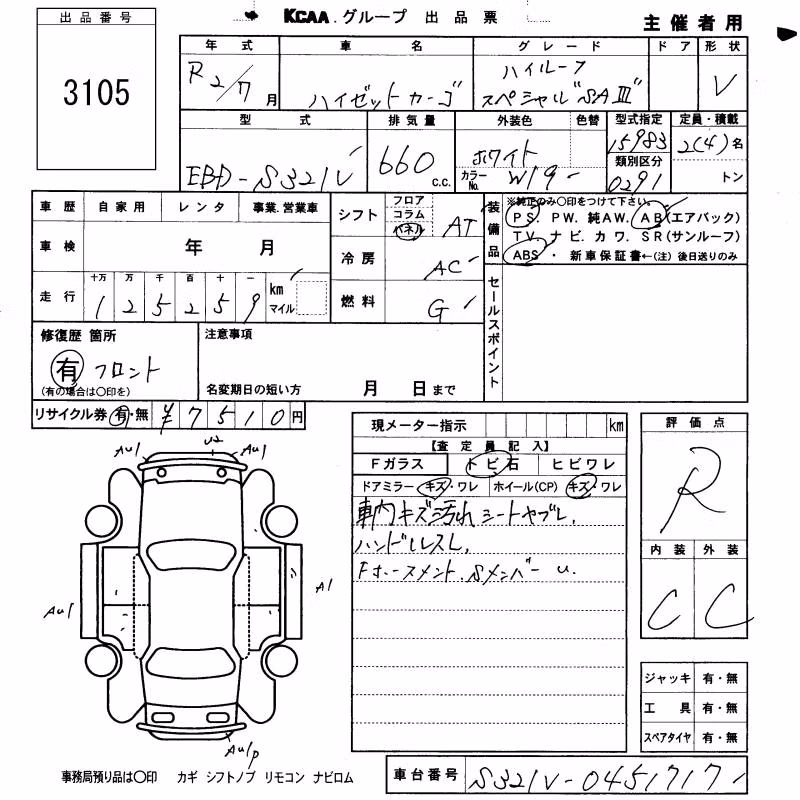 出品番号
3105
KCAA.グループ 出品票
主催者用
年式 車名 グレード ドア 形状
R2/7月 ハイゼットカーゴ ハイルーフ スペシャル"SAⅢ" V
型式 排気量 外装色 色替 型式指定 定員・積載
EBD-S321V 660 c.c. ホワイト カラーNo. W19 15983 2(4)名
類別区分 0291 トン
車歴 自家用 レンタ 事業.営業車
車検 年 月
走行 十万 万 千 百 十 一 km マイル
1 2 5 2 5 9
シフト フロア コラム パネル AT
冷房 AC
燃料 G
装備品 ※純正のみ○印をつけて下さい。
PS. PW. 純AW. AB(エアバック)
TV. ナビ. カワ. SR(サンルーフ)
ABS ・ 新車保証書←(注)後日送りのみ
セールスポイント
修復歴 箇所
有 フロント
(有の場合は○印を)
注意事項
名変期日の短い方 月 日まで
リサイクル券 有・無 ¥7510円
現メーター指示 km
【査定員記入】
Fガラス トビ石 ヒビワレ
ドアミラー キズ・ワレ ホイール(CP) キズ・ワレ
車内キズ汚れ シートヤブレ.
ハンドルスレ.
Fホースメント.Sメンバー u.
評価点
R
内装 外装
C C
ジャッキ 有・無
工具 有・無
スペアタイヤ 有・無
AU1 U2 AU1
AU1 A1
AU1p
事務局預り品は○印 カギ シフトノブ リモコン ナビロム
車台番号 S321V-0451717